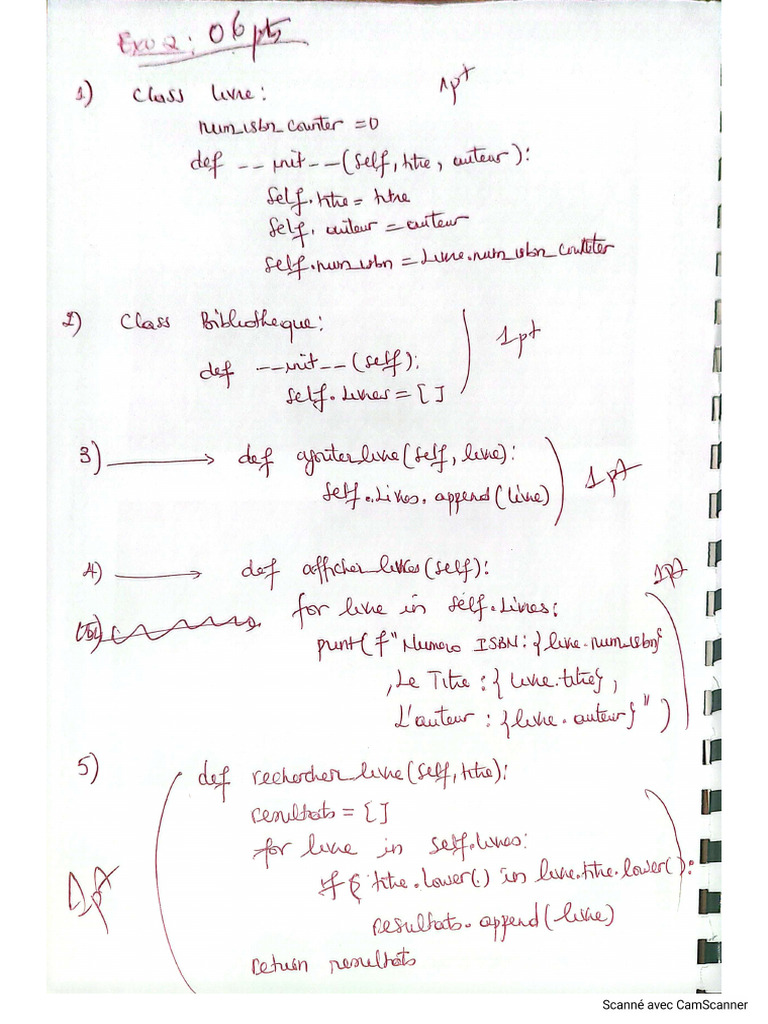 Exo 2: 06 pts
1) Class Livre: 1pt
num_isbn_counter = 0
def __init__(self, titre, auteur):
self.titre = titre
self.auteur = auteur
self.num_isbn = Livre.num_isbn_counter
2) Class Bibliotheque: 1pt
def __init__(self):
self.livres = []
3) def ajouter_livre(self, livre): 1pt
self.livres.append(livre)
4) def afficher_livres(self): 1pt
for livre in self.livres:
print(f"Numero ISBN: {livre.num_isbn}
, Le Titre : {livre.titre},
L'auteur : {livre.auteur}")
5) def rechercher_livre(self, titre):
resultats = []
for livre in self.livres:
if titre.lower() in livre.titre.lower():
1pt
resultats.append(livre)
return resultats
Scanné avec CamScanner